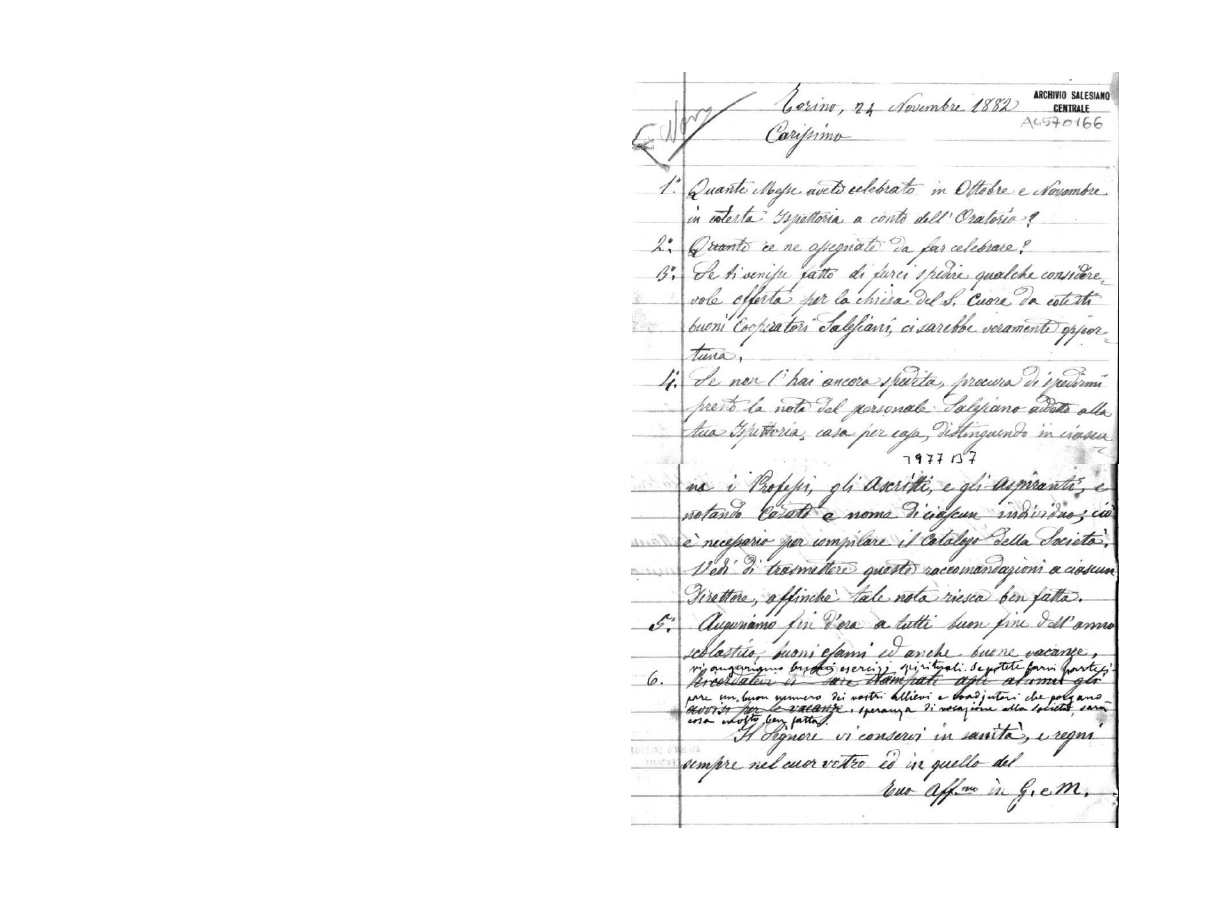 Torino, 24 Novembre 1882
ARCHIVIO SALESIANO
CENTRALE
A4570166
Carissimo
1° Quante Messe avete celebrato in Ottobre e Novembre
in cotesta Ispettoria a conto dell' Oratorio?
2° Quante ce ne assegnate da far celebrare?
3° Se ti venisse fatto di farci spedire qualche considere-
vole offerta per la chiesa del S. Cuore da cotesti
buoni Cooperatori Salesiani, ci sarebbe veramente oppor-
tuna.
4. Se non l' hai ancora spedita, procura di spedirmi
presto la nota del personale Salesiano addetto alla
tua Ispettoria, casa per casa, distinguendo in ciascu-
1977 B7
na i Professi, gli Ascritti, e gli Aspiranti, e
notando e nome di ciascun individuo; ciò
è necessario per compilare il Catalogo della Società.
Vedi di trasmettere queste raccomandazioni a ciascun
Direttore, affinchè tale nota riesca ben fatta.
5. Auguriamo fin d'ora a tutti buon fine dell'anno
scolastico, buoni esami ed anche buone vacanze,
vi auguriamo buoni esercizi spirituali. Se potete farvi parteci
6. Ricordatevi di dare stampati agli alunni gli
pare un buon numero dei vostri allievi e coadjutori che porgano
avvisi per le vacanze. speranza di vocazione alla società, sarà
cosa molto ben fatta.
Il Signore vi conservi in sanità, e regni
sempre nel cuor vostro ed in quello del
Tuo Aff.mo in G. e M.